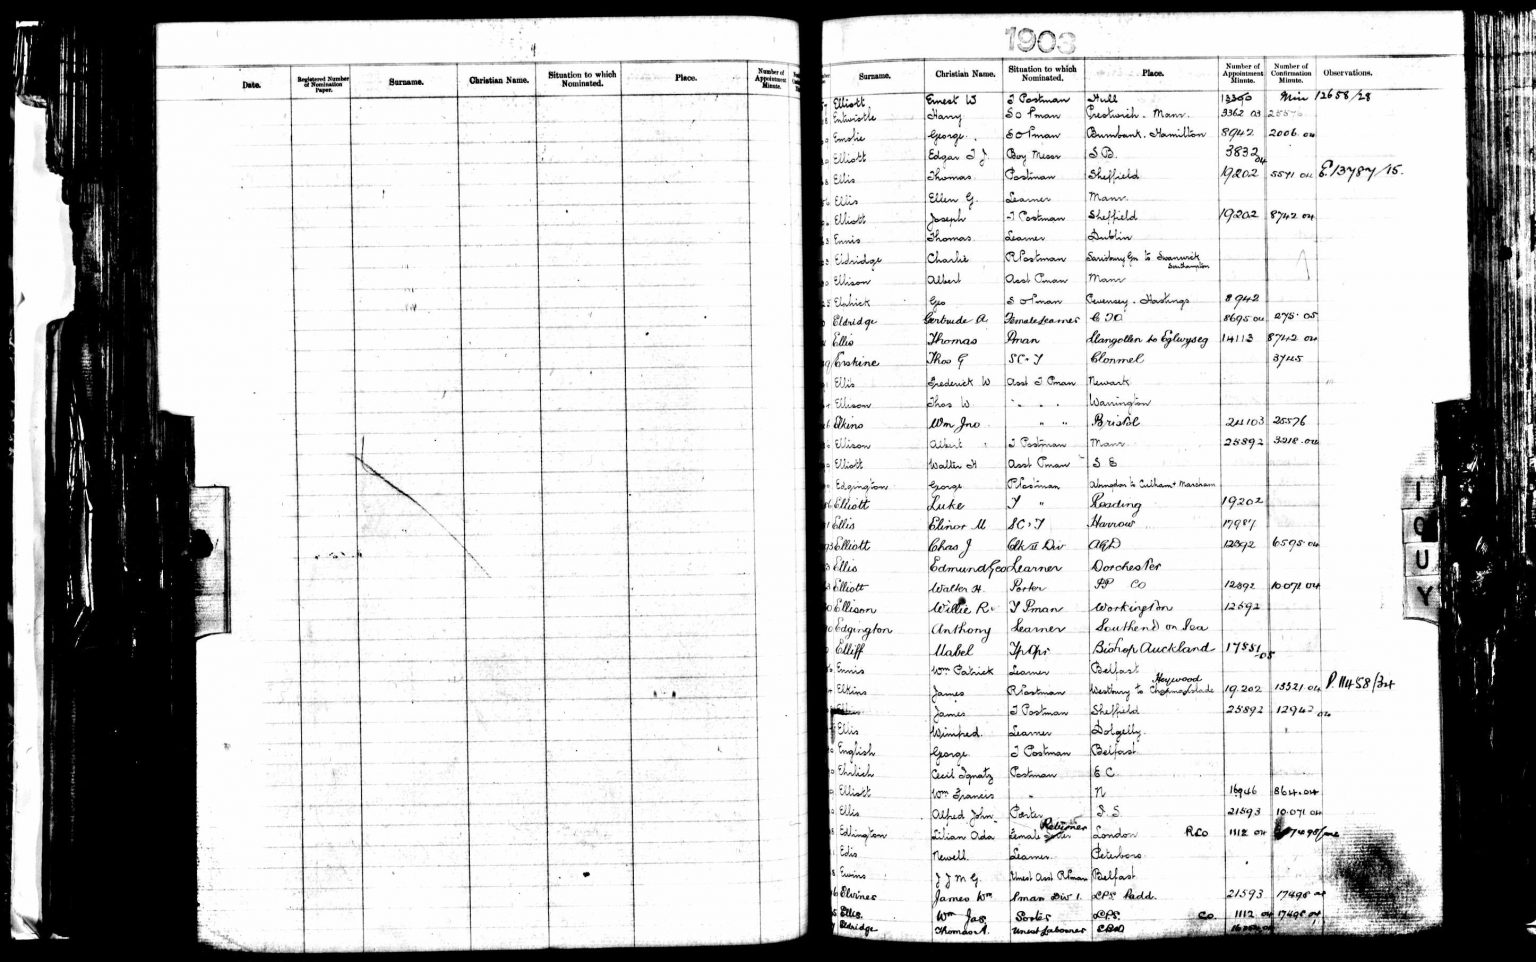 1903
Date. Registered Number of Nomination Paper. Surname. Christian Name. Situation to which Nominated. Place. Number of Appointment Minute.
Surname. Christian Name. Situation to which Nominated. Place. Number of Appointment Minute. Number of Confirmation Minute. Observations.
Elliott Ernest W T Postman Hull 13390 Min 12658/28
Entwistle Harry S O Pman Prestwich. Manr. 3362 03 25576
Emslie George. S O Pman Burnbank. Hamilton 8942 2006.04
Elliott Edgar T J. Boy Messr S.B. 3832 04
Ellis Thomas Postman Sheffield 19202 5571 04 E.13787/15.
Ellis Ellen G. Learner Manr.
Elliott Joseph T Postman Sheffield 19202 8742 04
Ennis Thomas Learner Dublin
Eldridge Charlie R Postman Sarisbury Gn to Swanwick Southampton
Ellison Albert Asst Pman Manr
Geo S O Pman Pevensey. Hastings 8942
Eldridge Gertrude A. Female Learner C T O 8695 04 275.05
Ellis Thomas Pman Llangollen to Eglwyseg 14113 8742 04
Erskine Thos G SC & T Clonmel 3745
Ellis Frederick W Asst T Pman Newark
Ellison Thos W. " " " Warrington
Elkins Wm Jno " " Bristol 24103 25576
Ellison Albert T Postman Manr 25892 3218.04
Elliott Walter H Asst Pman S E
Edgington George R Postman Abingdon to Culham & Marcham
Elliott Luke T " Reading 19202
Ellis Elinor M SC & T Harrow 17987
Elliott Chas J Clk II Div AGD 12892 6595.04
Ellis Edmund Geo Learner Dorchester
Elliott Walter H. Porter PP CO 12892 10071 04
Ellison Willie R. T Pman Workington 12892
Edgington Anthony Learner Southend on Sea
Elliff Mabel Tp Opr Bishop Auckland 17851.05
Ennis Wm Patrick Learner Belfast
Elkins James R Postman Westbury to Heywood 19.202 13321.04 P.11458/34
Ellis James T Postman Sheffield 25892 12942 04
Ellis Winifred. Learner Dolgelly.
English George. T Postman Belfast
Ehrlich Cecil Ignatz Postman E C
Elliott Wm Francis " N 16946 864.04
Ellis Alfred John. Porter S. S. 21593 10.071 04
Edlington Lilian Ada Female Sorter London RLO 1112 04
Edis Newell. Learner. Peterboro.
Ewins J J M G. Unest Asst R Pman Belfast
Elvines James Wm Pman Div 1. LPS. Padd. 21593 17498 04
Ellis. Wm Jas. Sorter LPS. CO. 1112 04 17498 04
Eldridge Thomas A. Unest Labourer
I
Q
U
Y